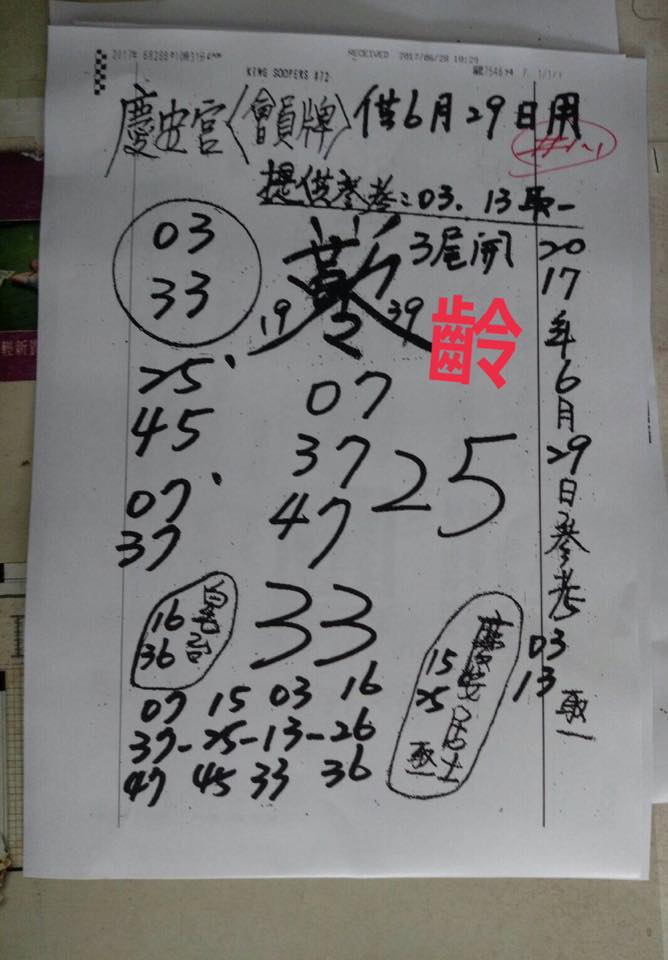 2017年 6月28日10時31分
RECEIVED 2017/06/28 10:29
KING SOOPERS #72
慶安宮〈會員牌〉供6月29日用
提供參考:03. 13取一
03
33
3尾開
19
39
齡
25
45
07
37
07
37
47
25
16
36
33
07 15 03 16
37-25-13-26
47 45 33 36
15
25
取一
2017年6月29日參考
03
13
取一